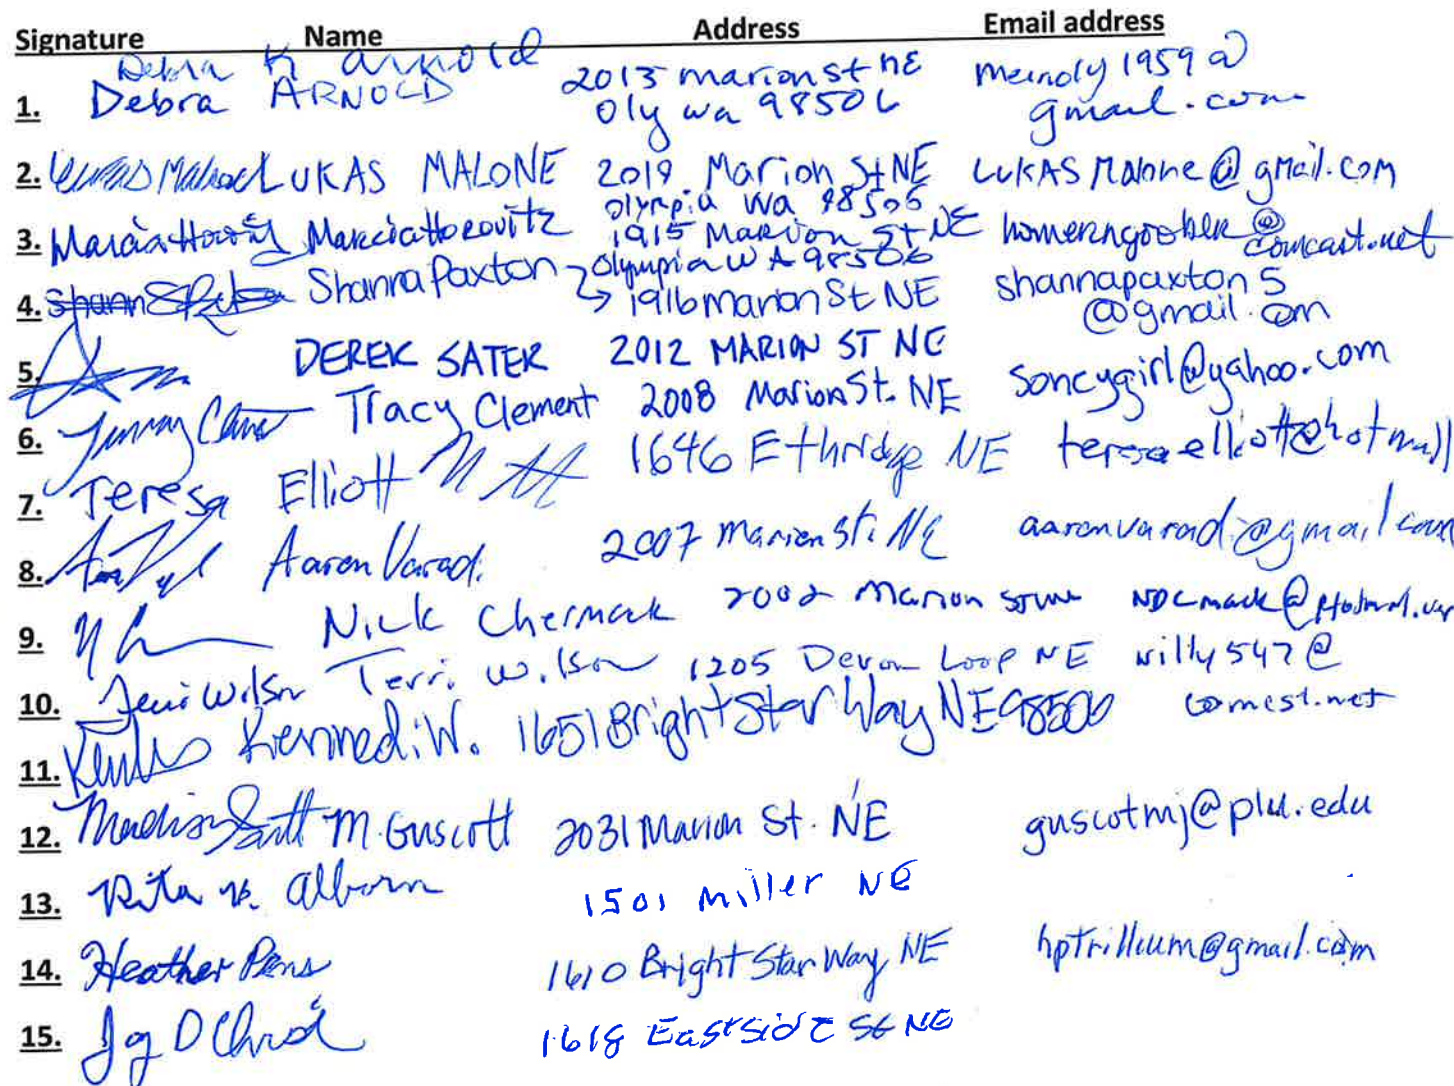 Signature Name Address Email address
Debra K Arnold
1. Debra ARNOLD 2013 marion st NE meindy1959@
Oly wa 98506 gmail.com
2. LUKAS MALONE 2019 Marion St NE LUKASMalone@gmail.com
Olympia Wa 98506
3. Marcia Horovitz 1915 Marion St NE homerngoober@comcast.net
Olympia WA 98506
4. Shanna Paxton 1916 Marion St NE shannapaxton5
@gmail.com
5. DEREK SATER 2012 MARION ST NE
6. Tracy Clement 2008 Marion St. NE soncygirl@yahoo.com
7. Teresa Elliott 1646 Ethridge NE teresaelliott@hotmail
8. Aaron Varadi 2007 Marion St. NE aaronvaradi@gmail.com
9. Nick Chermack 2002 Marion ST NE
10. Terri Wilson Terri Wilson 1205 Devon Loop NE willy547@
comcst.net
11. Kennedi W. 1651 Bright Star Way NE 98506
12. Madison M. Guscott 2031 Marion St. NE guscotmj@plu.edu
13. Rita Alborn 1501 Miller NE
14. Heather Pens 1610 Bright Star Way NE hptrillium@gmail.com
15. 1618 Eastside St NE